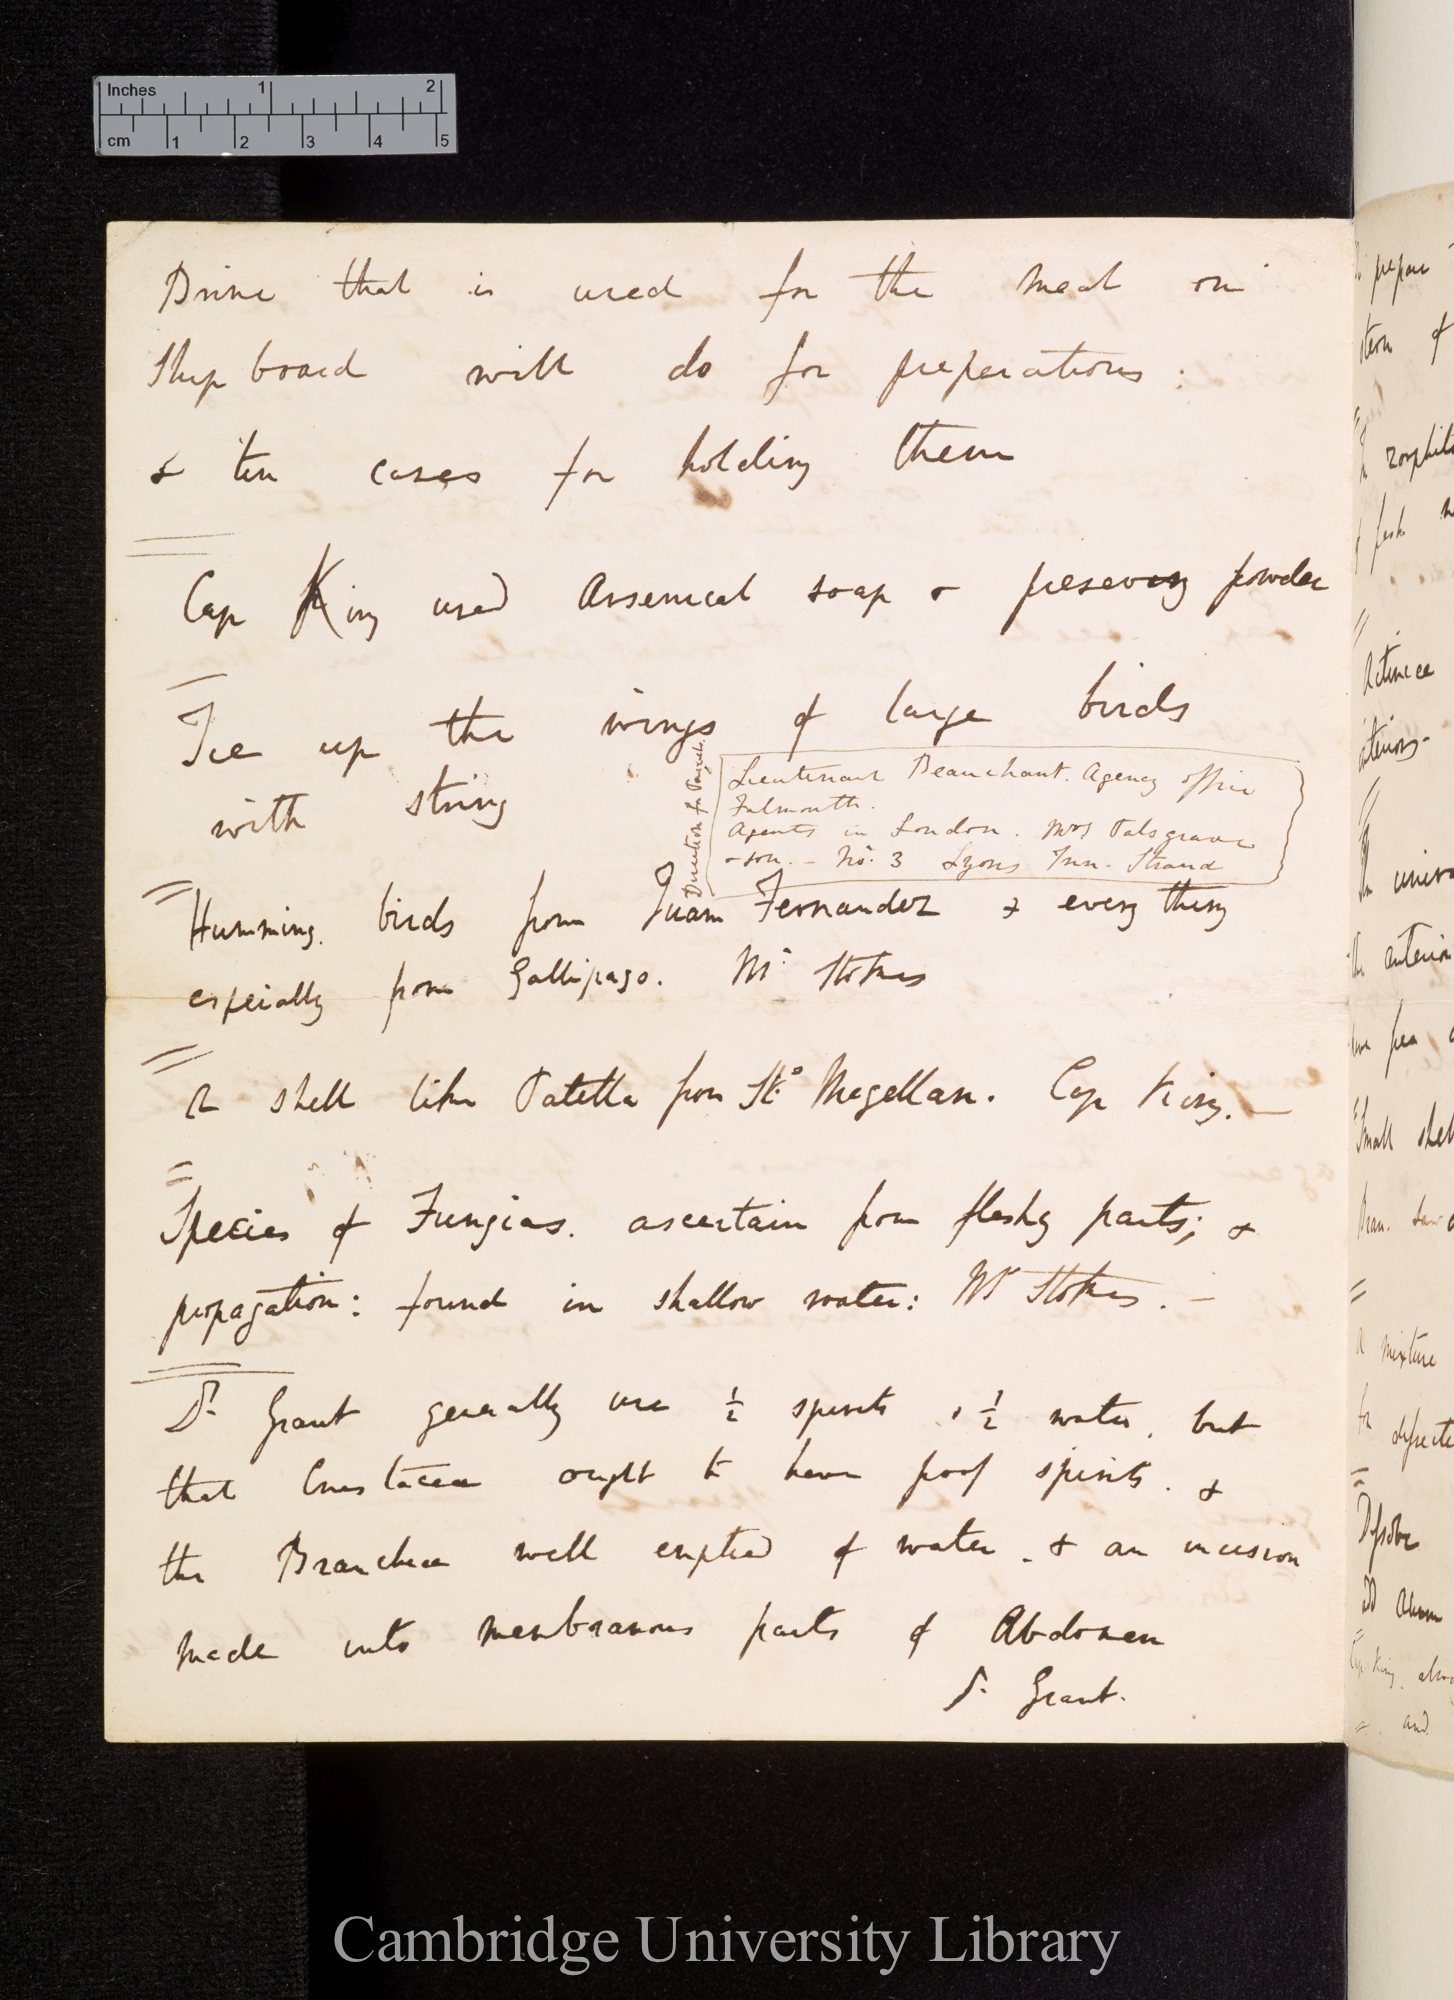 Inches 1 2
cm 1 2 3 4 5
Brine that is used for the meat on
Ship board will do for preparations:
& tin cases for holding them
Cap King used Arsenical soap & preserving powder
Tie up the wings of large birds
with string
Direction for Parcels.
Lieutenant Beauchant. Agency office
Falmouth.
Agents in London. Mrs Palsgrave
& son. – No. 3 Lyons Inn. Strand
Humming birds from Juan Fernandez & every thing
especially from Gallipago. Mr Stokes
A shell like Patella from Sts Magellan. Cap King. —
Species of Fungias. ascertain from fleshy parts; &
propagation: found in shallow water: Mr Stokes. –
Dr. Grant generally use ½ spirits , ½ water, but
that Crustaceæ ought to have proof spirits. &
the Branchiæ well emptied of water. & an incision
made into membranous parts of Abdomen
Dr. Grant.
prepare
stern of
fish
Actineæ
interior
Small shell
A mixture
for
Dissolve
Alum
Cap King
and
Cambridge University Library